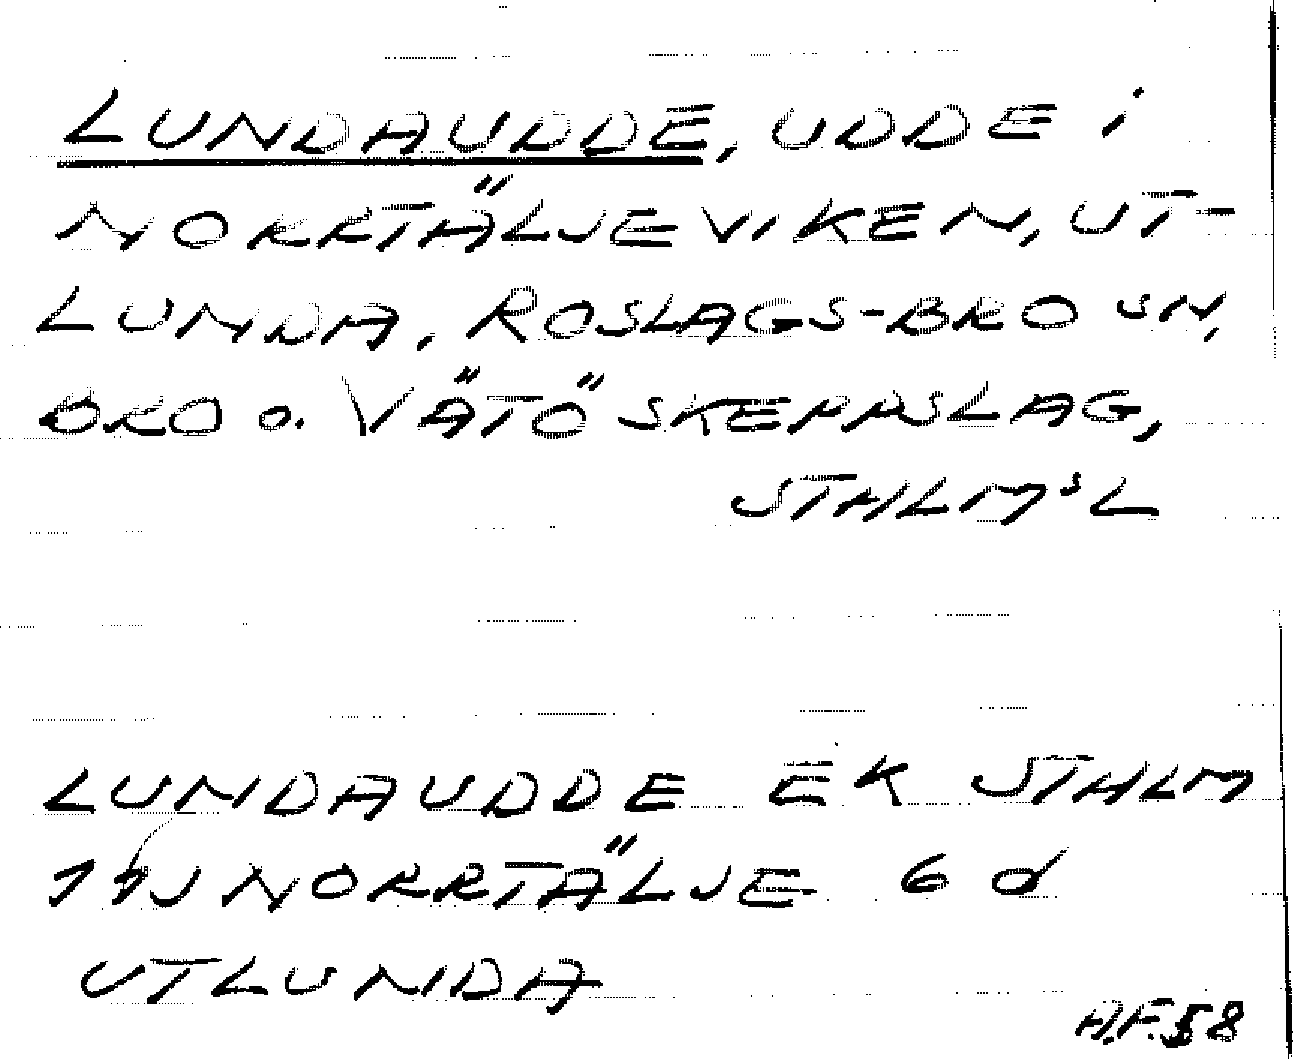 LUNDAUDDE, UDDE i
NORRTÄLJEVIKEN, UT-
LUNDA, ROSLAGS-BRO SN,
BRO o. VÄTÖ SKEPPSLAG,
STHLMS L
LUNDAUDDE EK STHLM
11J NORRTÄLJE 6 d
UTLUNDA
A.F. 58